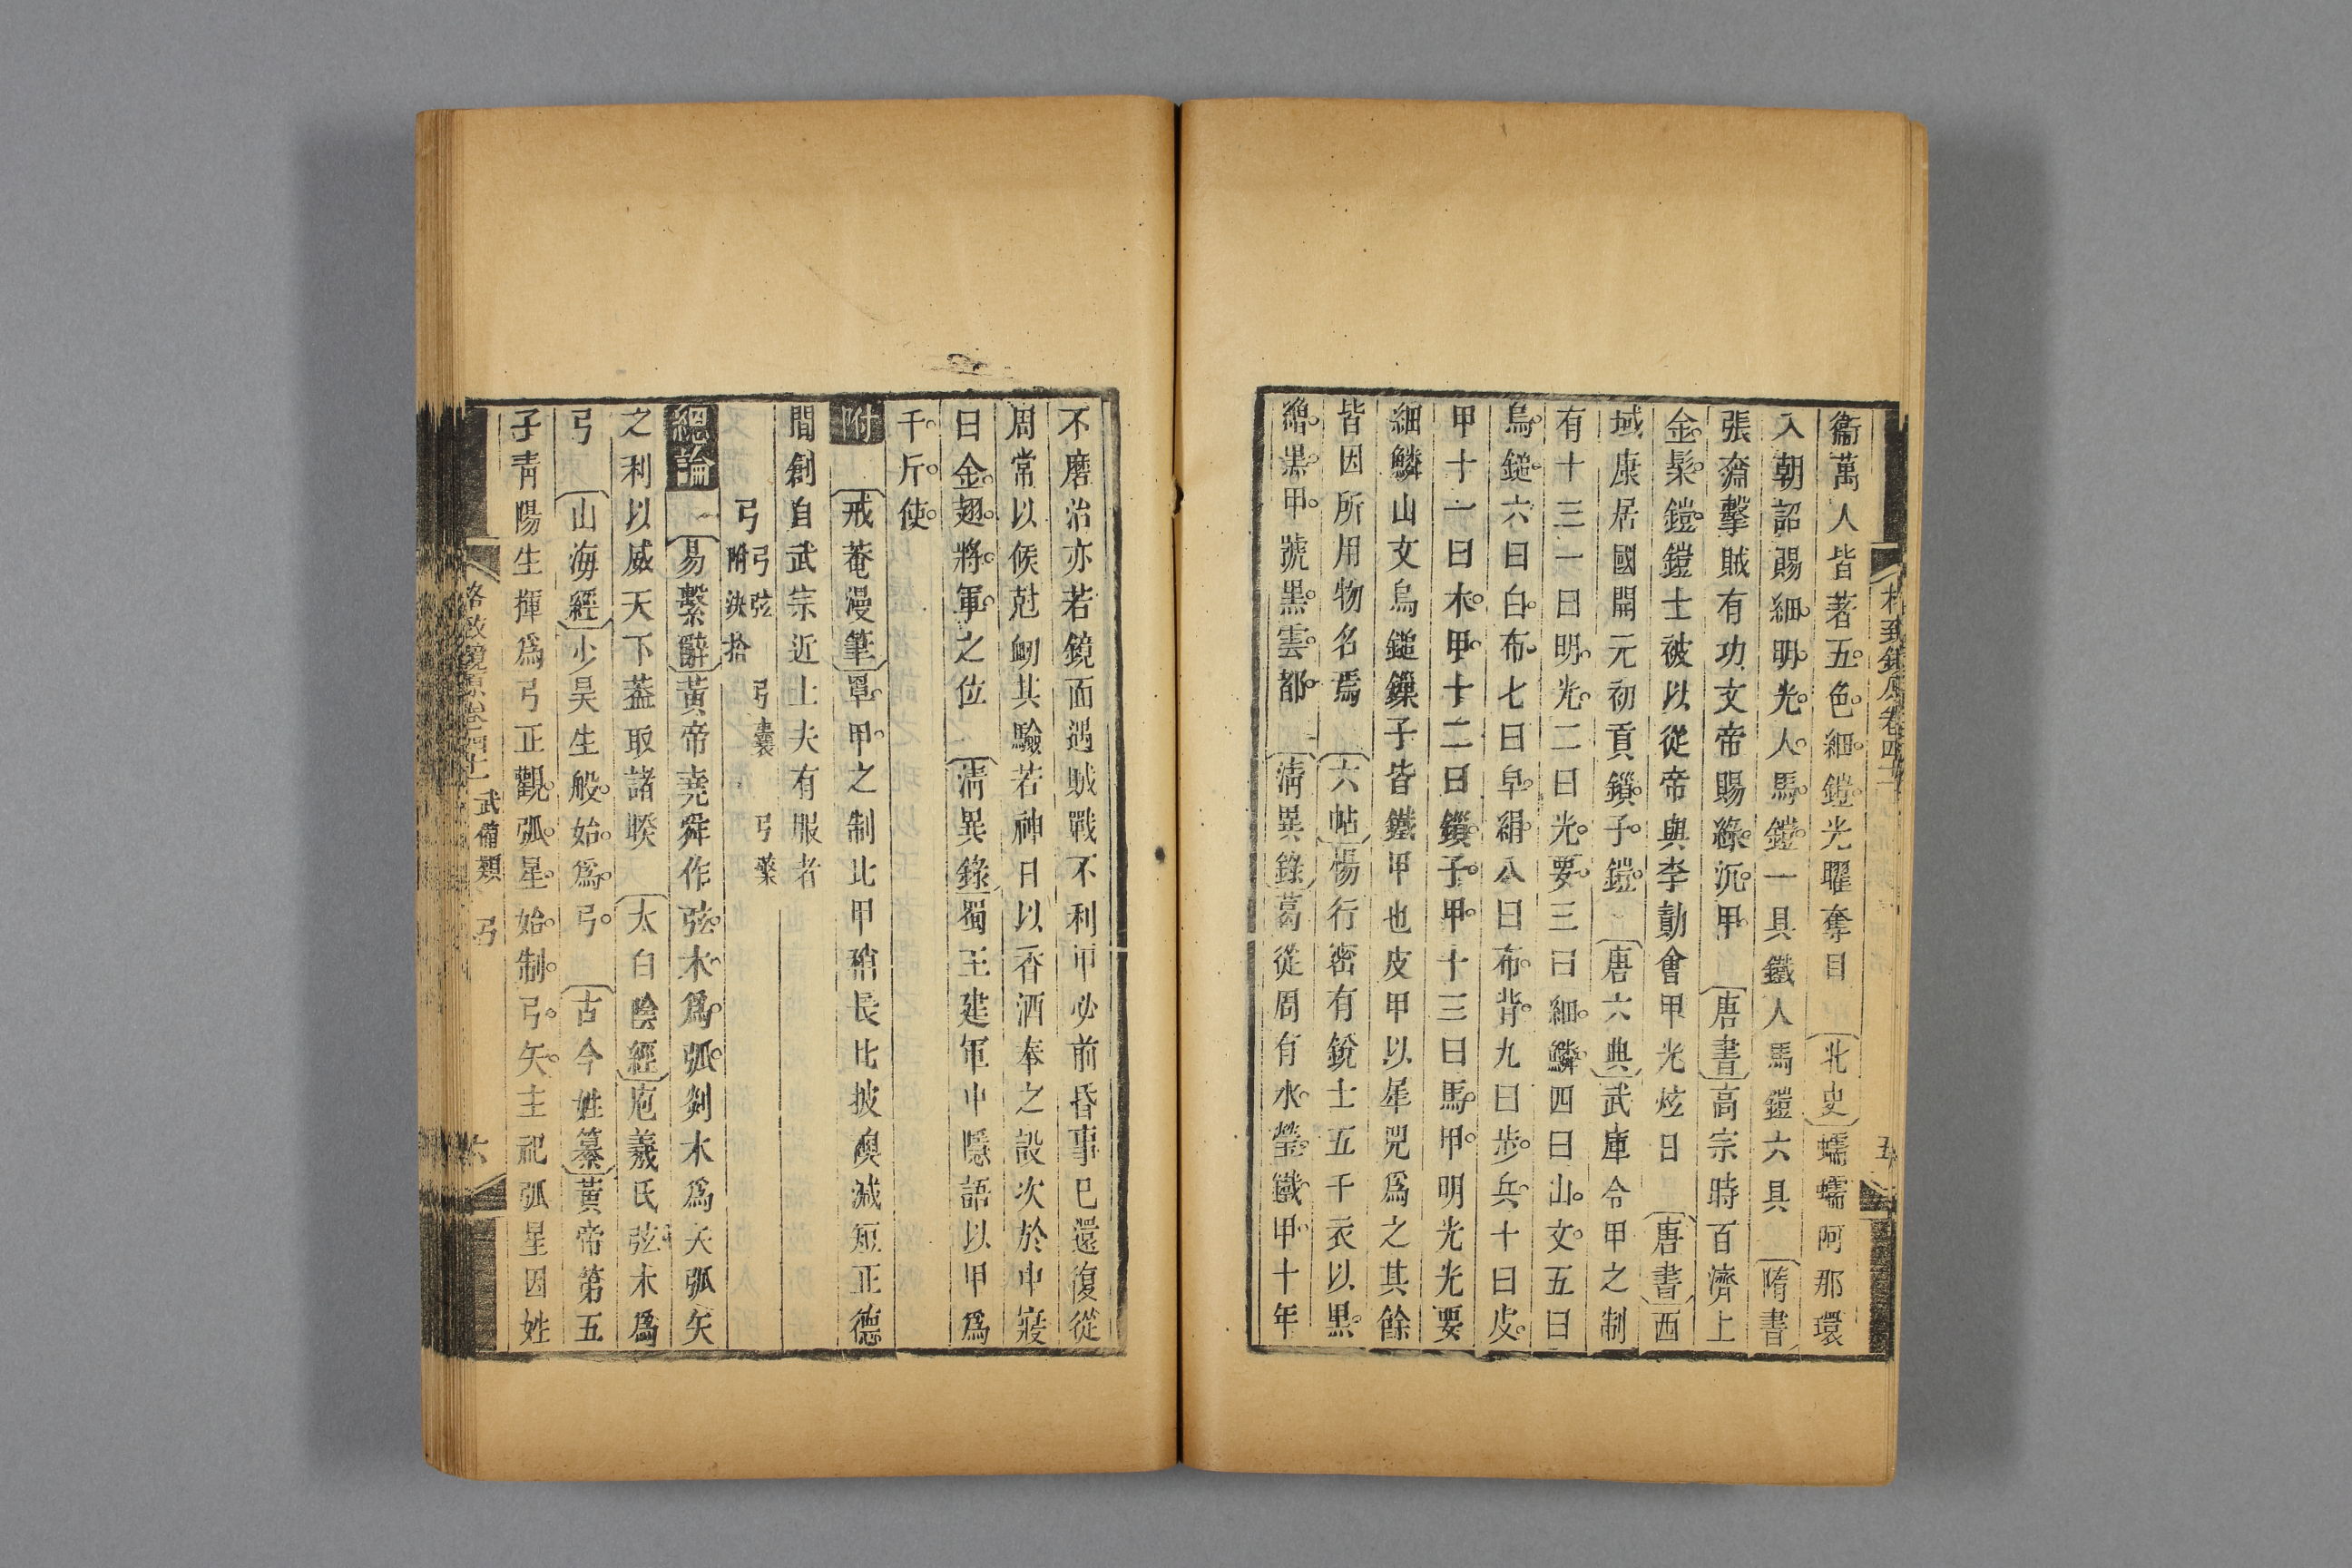 格致鏡原卷四十二
五
衞萬人皆著五色細鎧光曜奪目〔北史〕蠕蠕阿那環
入朝詔賜細明光人馬鎧一具鐵人馬鎧六具〔隋書〕
張奫擊賊有功文帝賜綠沉甲〔唐書〕高宗時百濟上
金髹鎧鎧士被以從帝與李勣會甲光炫日〔唐書〕西
域康居國開元初貢鎖子鎧〔唐六典〕武庫令甲之制
有十三一曰明光二曰光要三曰細鱗四曰山文五曰
烏鎚六曰白布七曰皁絹八曰布背九曰步兵十曰皮
甲十一曰木甲十二曰鎖子甲十三曰馬甲明光光要
細鱗山文烏鎚鏁子皆鐵甲也皮甲以犀兕爲之其餘
皆因所用物名焉〔六帖〕楊行密有銳士五千衣以黑
繒黑甲號黑雲都〔清異錄〕葛從周有水瑩鐵甲十年
不磨治亦若鏡面遇賊戰不利甲必前昏事已還復從
周常以候尅衂其驗若神日以香酒奉之設次於中寢
曰金翅將軍之位〔清異錄〕蜀王建軍中隱語以甲爲
千斤使
附〔戒菴漫筆〕罩甲之制比甲稍長比披襖減短正德
間創自武宗近士夫有服者
弓 弓弦 弓囊 弓檠 附 決拾
總論〔易繫辭〕黃帝堯舜作弦木爲弧剡木爲矢弧矢
之利以威天下葢取諸睽〔太白陰經〕庖羲氏弦木爲
弓〔山海經〕少昊生般始爲弓〔古今姓纂〕黃帝第五
子青陽生揮爲弓正觀弧星始制弓矢主祀弧星因姓
格致鏡原卷四十二 武備類 弓
六